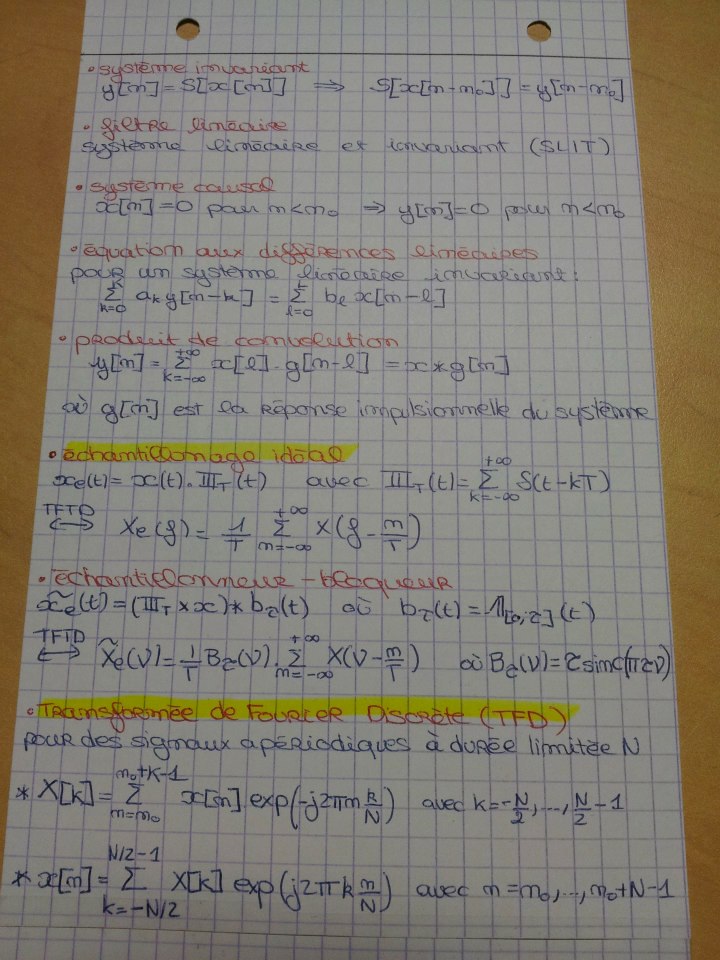 • système invariant
y[n] = S[x[n]] ⟹ S[x[n-n₀]] = y[n-n₀]
• filtre linéaire
système linéaire et invariant (SLIT)
• système causal
x[n] = 0 pour n < n₀ ⟹ y[n] = 0 pour n < n₀
• équation aux différences linéaires
pour un système linéaire invariant :
∑_{k=0}^{K} a_k y[n-k] = ∑_{l=0}^{L} b_l x[n-l]
• produit de convolution
y[n] = ∑_{k=-∞}^{+∞} x[l] . g[n-l] = x * g[n]
où g[n] est la réponse impulsionnelle du système
• échantillonnage idéal
x_e(t) = x(t) . III_T(t) avec III_T(t) = ∑_{k=-∞}^{+∞} δ(t-kT)
TFTD ⟷ X_e(f) = 1/T ∑_{n=-∞}^{+∞} X(f - n/T)
• échantillonneur-bloqueur
x̃_e(t) = (III_T × x) * b_τ(t) où b_τ(t) = 𝟙_{[0,τ]}(t)
TFTD ⟷ X̃_e(ν) = 1/T B_τ(ν) . ∑_{n=-∞}^{+∞} X(ν - n/T) où B_τ(ν) = τ sinc(πτν)
• Transformée de Fourier Discrète (TFD)
pour des signaux apériodiques à durée limitée N
* X[k] = ∑_{n=n₀}^{n₀+K-1} x[n] exp(-j2πn k/N) avec k = -N/2, ..., N/2 - 1
* x[n] = ∑_{k=-N/2}^{N/2-1} X[k] exp(j2πk n/N) avec n = n₀, ..., n₀+N-1